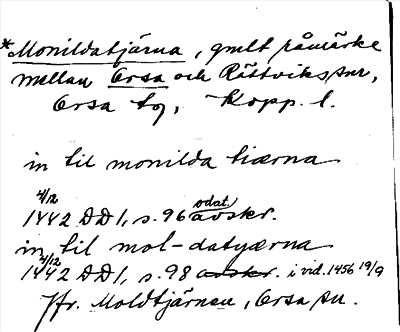 *Monildatjärna, gmlt råmärke
mellan Orsa och Rättviks snr,
Orsa tg, Kopp. l.
in til monilda tiærna
4/12 1442 DD 1, s. 96 odat. avskr.
in til mol-datyærna
4/12 1442 DD 1, s. 98 avskr. i vid. 1456 19/9
Jfr. Moldtjärnen, Orsa sn.